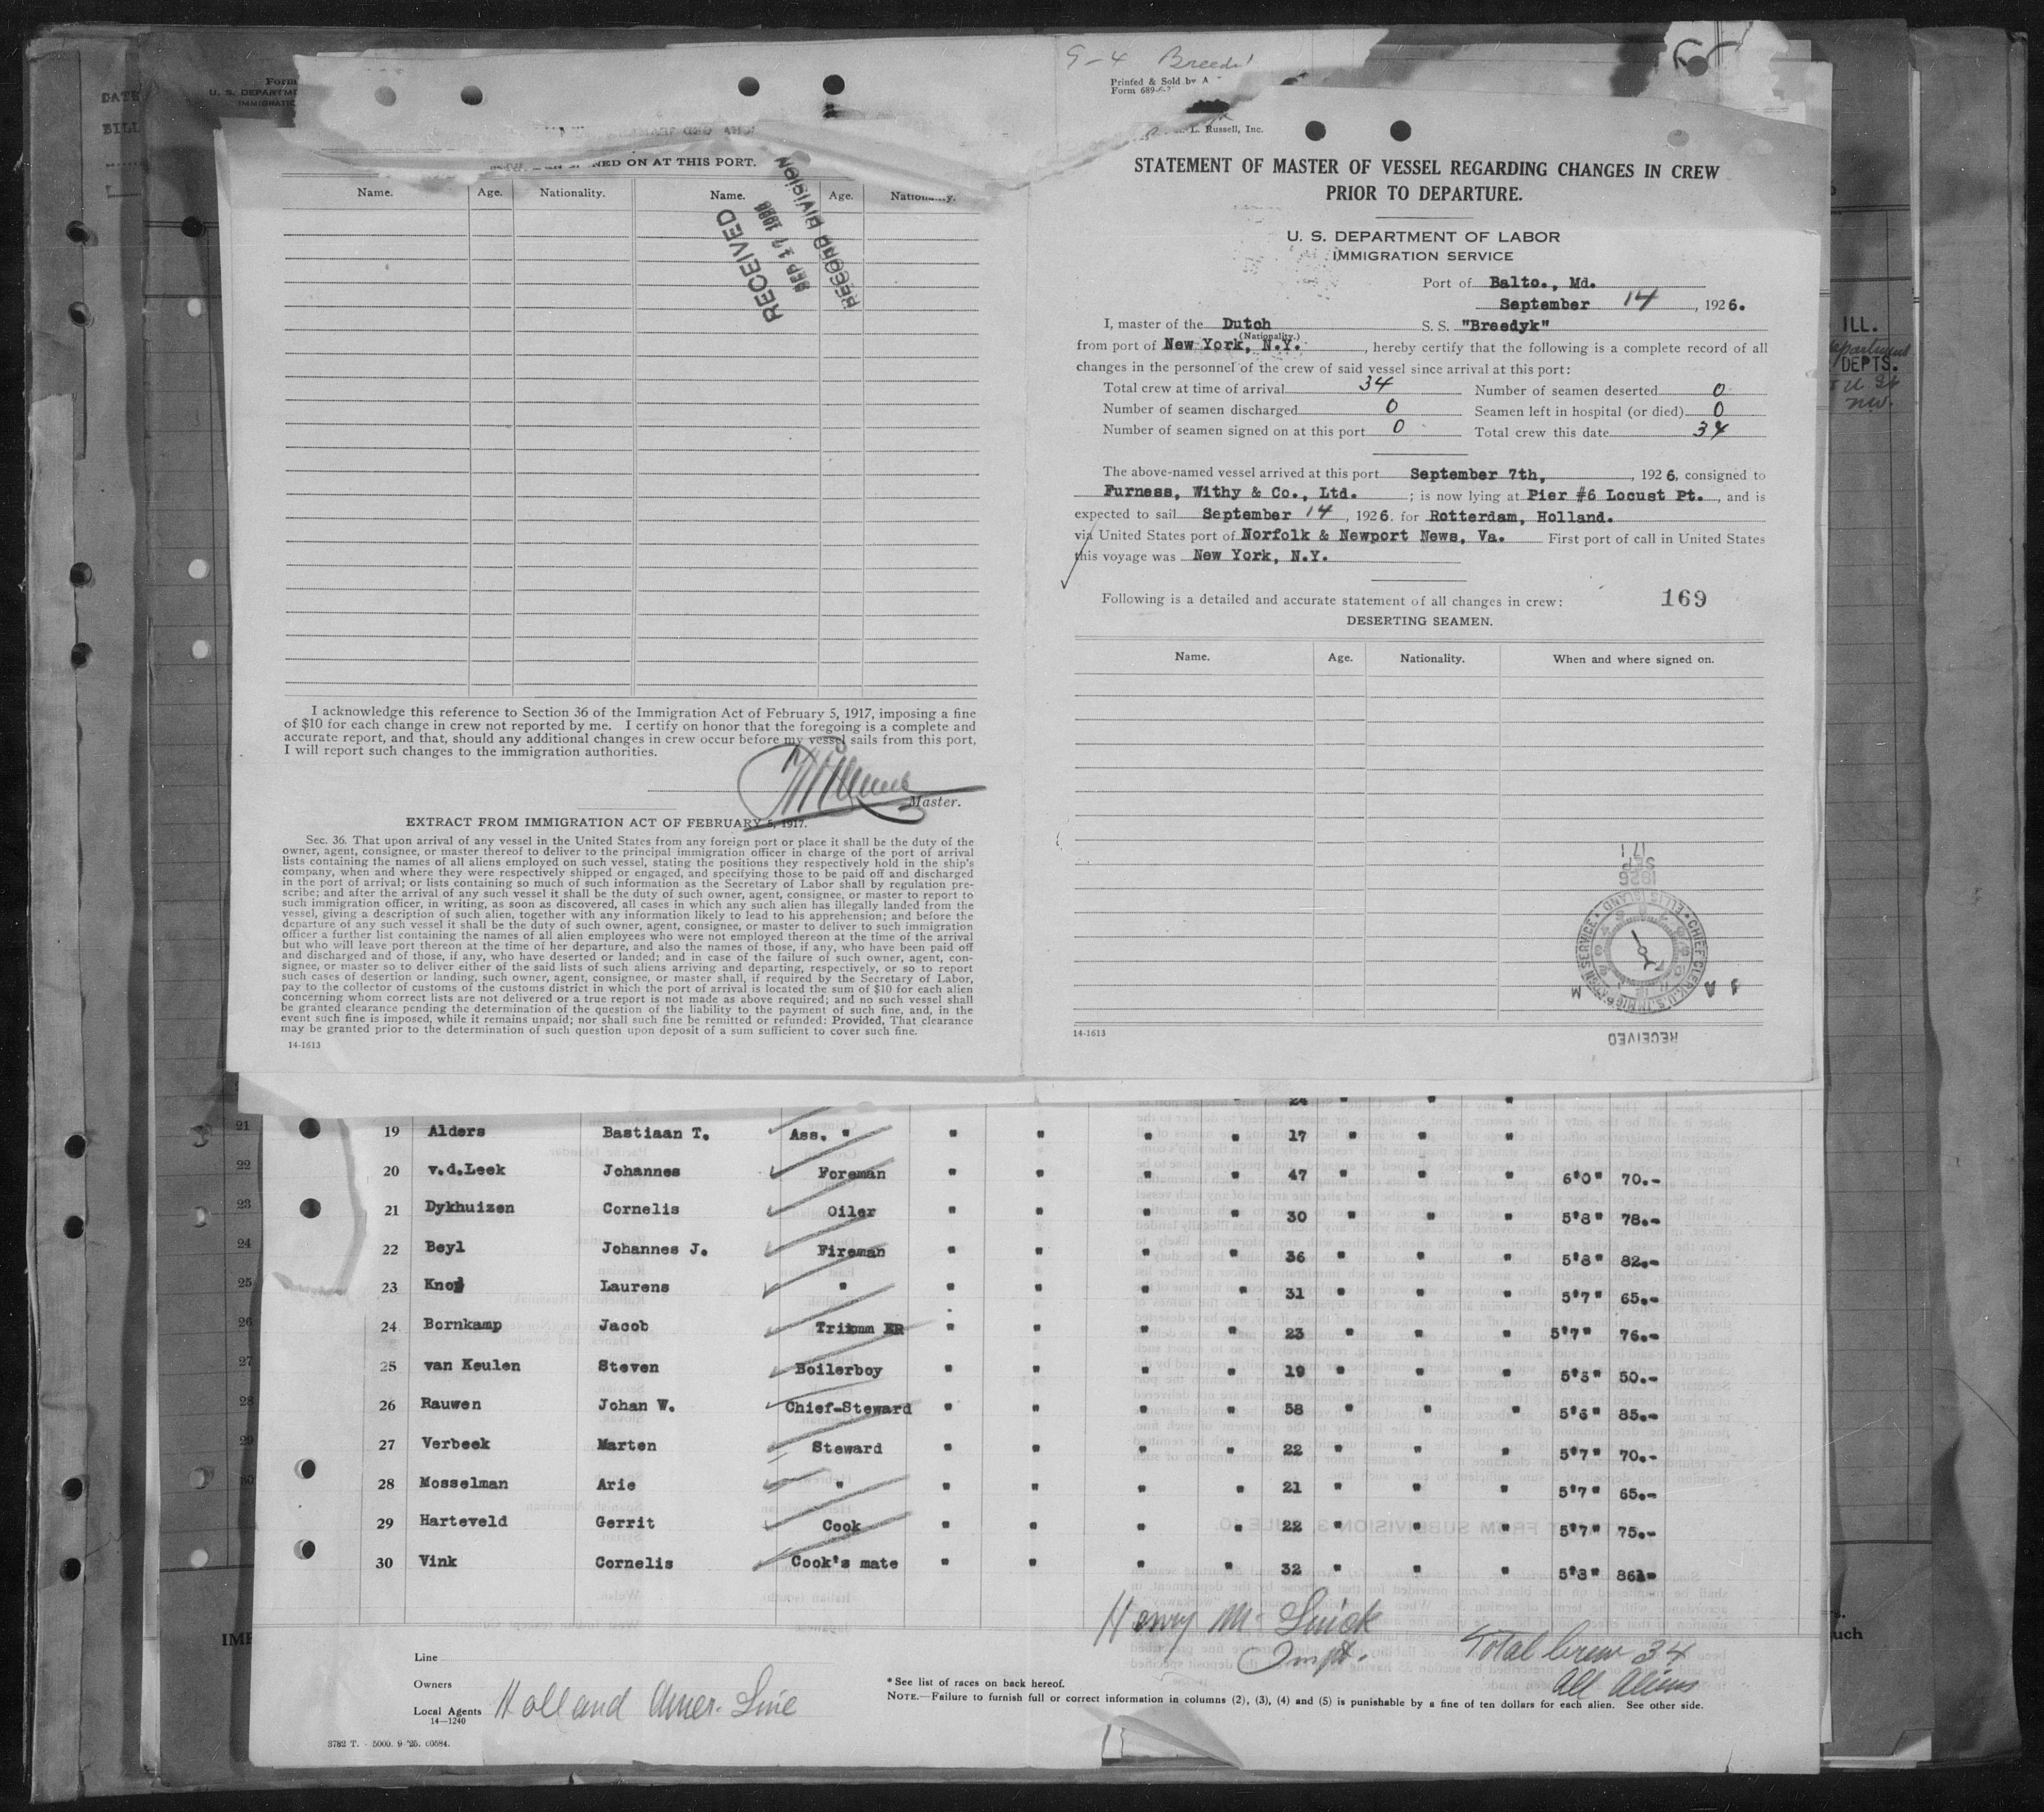 DATE
BILL
Form
U. S. DEPARTM
IMMIGRATIO
NED ON AT THIS PORT.
Name. Age. Nationality. Name. Age. Nationality.
RECEIVED
SEP 17 1926
RECORD DIVISION
I acknowledge this reference to Section 36 of the Immigration Act of February 5, 1917, imposing a fine
of $10 for each change in crew not reported by me. I certify on honor that the foregoing is a complete and
accurate report, and that, should any additional changes in crew occur before my vessel sails from this port,
I will report such changes to the immigration authorities.
Master.
EXTRACT FROM IMMIGRATION ACT OF FEBRUARY 5, 1917.
Sec. 36. That upon arrival of any vessel in the United States from any foreign port or place it shall be the duty of the
owner, agent, consignee, or master thereof to deliver to the principal immigration officer in charge of the port of arrival
lists containing the names of all aliens employed on such vessel, stating the positions they respectively hold in the ship's
company, when and where they were respectively shipped or engaged, and specifying those to be paid off and discharged
in the port of arrival; or lists containing so much of such information as the Secretary of Labor shall by regulation pre-
scribe; and after the arrival of any such vessel it shall be the duty of such owner, agent, consignee, or master to report to
such immigration officer, in writing, as soon as discovered, all cases in which any such alien has illegally landed from the
vessel, giving a description of such alien, together with any information likely to lead to his apprehension; and before the
departure of any such vessel it shall be the duty of such owner, agent, consignee, or master to deliver to such immigration
officer a further list containing the names of all alien employees who were not employed thereon at the time of the arrival
but who will leave port thereon at the time of her departure, and also the names of those, if any, who have been paid off
and discharged and of those, if any, who have deserted or landed; and in case of the failure of such owner, agent, con-
signee, or master so to deliver either of the said lists of such aliens arriving and departing, respectively, or so to report
such cases of desertion or landing, such owner, agent, consignee, or master shall, if required by the Secretary of Labor,
pay to the collector of customs of the customs district in which the port of arrival is located the sum of $10 for each alien
concerning whom correct lists are not delivered or a true report is not made as above required; and no such vessel shall
be granted clearance pending the determination of the question of the liability to the payment of such fine, and, in the
event such fine is imposed, while it remains unpaid; nor shall such fine be remitted or refunded: Provided, That clearance
may be granted prior to the determination of such question upon deposit of a sum sufficient to cover such fine.
14-1613
9-4 Breed
Printed & Sold by A
Form 689
L. Russell, Inc.
STATEMENT OF MASTER OF VESSEL REGARDING CHANGES IN CREW
PRIOR TO DEPARTURE.
U. S. DEPARTMENT OF LABOR
IMMIGRATION SERVICE
Port of Balto., Md.
September 14, 1926.
I, master of the Dutch S. S. "Breedyk"
(Nationality.)
from port of New York, N.Y., hereby certify that the following is a complete record of all
changes in the personnel of the crew of said vessel since arrival at this port:
Total crew at time of arrival 34 Number of seamen deserted 0
Number of seamen discharged 0 Seamen left in hospital (or died) 0
Number of seamen signed on at this port 0 Total crew this date 34
The above-named vessel arrived at this port September 7th, 1926, consigned to
Furness, Withy & Co., Ltd. ; is now lying at Pier #6 Locust Pt., and is
expected to sail September 14, 1926. for Rotterdam, Holland.
via United States port of Norfolk & Newport News, Va. First port of call in United States
this voyage was New York, N.Y.
Following is a detailed and accurate statement of all changes in crew: 169
DESERTING SEAMEN.
Name. Age. Nationality. When and where signed on.
1926
SEP
171
CHIEF CLERK, U.S. IMMIGRATION SERVICE
ELLIS ISLAND
RECEIVED
14-1613
ILL.
epartment
DEPTS.
24 " " "
21 19 Alders Bastiaan T. Ass. " " " " " 17 " " "
22 20 v.d.Leek Johannes Foreman " " " " 47 " " " 6'0" 70.-
23 21 Dykhuizen Cornelis Oiler " " " " 30 " " " 5'8" 78.-
24 22 Beyl Johannes J. Fireman " " " " 36 " " " 5'8" 82.-
25 23 Laurens " " " " " 31 " " " 5'7" 65.-
26 24 Bornkamp Jacob Trimm ER " " " " 23 " " " 5'7" 76.-
27 25 van Keulen Steven Boilerboy " " " " 19 " " " 5'5" 50.-
28 26 Rauwen Johan W. Chief-Steward " " " " 58 " " " 5'6" 85.-
29 27 Verbeek Marten Steward " " " " 22 " " " 5'7" 70.-
30 28 Mosselman Arie " " " " " 21 " " " 5'7" 65.-
29 Harteveld Gerrit Cook " " " " 22 " " " 5'7" 75.-
30 Vink Cornelis Cook's mate " " " " 32 " " " 5'8"
IMP
uch
Henry M.
Total Crew 34
All Aliens
Line
Owners
Local Agents Holland Amer. Line
14—1240
* See list of races on back hereof.
NOTE.—Failure to furnish full or correct information in columns (2), (3), (4) and (5) is punishable by a fine of ten dollars for each alien. See other side.